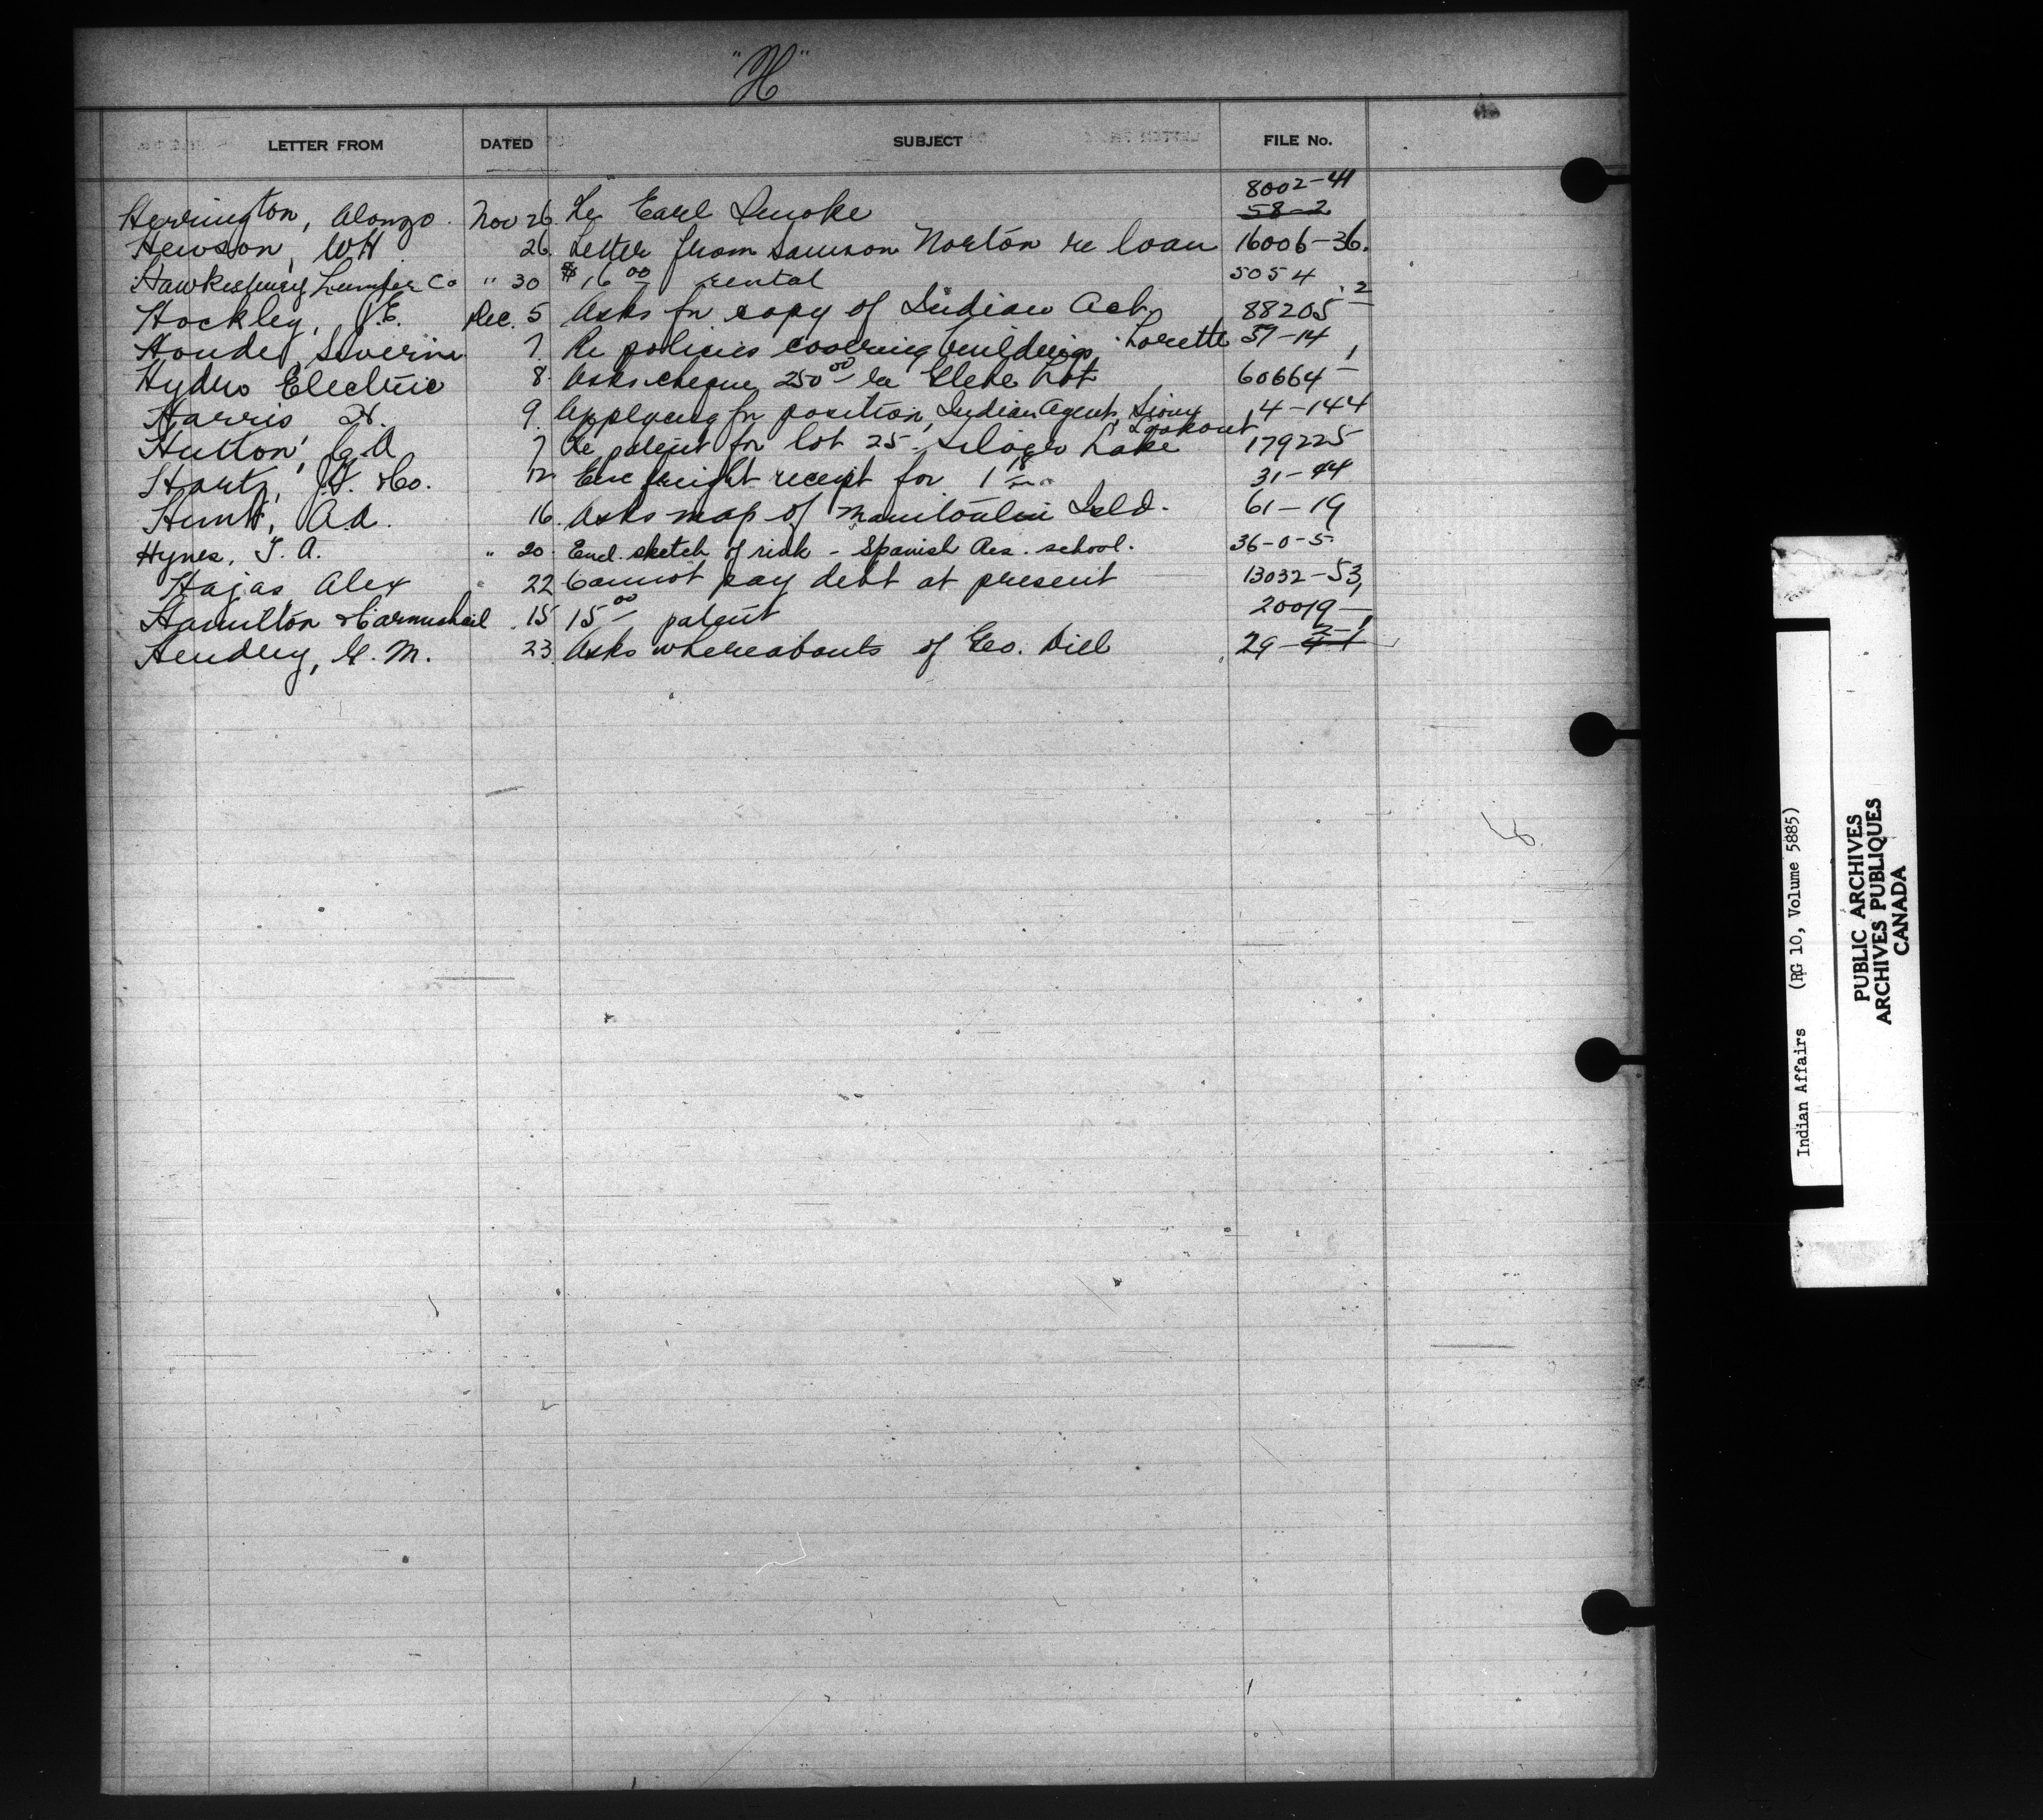 "H"
LETTER FROM DATED SUBJECT FILE No.
8002-41
Herrington, Alonzo. Nov 26 Re Earl Smoke 58-2
Hewson, WH 26. Letter from Samson Norton re loan 16006-36.
Hawkesbury Lumber Co " 30 $16 00 rental 5054
Hockley, J.E. Dec. 5 Asks for copy of Indian Act 88205-2
Houde, Severin 7. Re policies covering buildings, Lorette 37-14
Hydro Electric 8. Asks cheque 250 00 re Glebe Lot 60664-1
Harris H. 9. Applying for position, Indian Agent, Sioux 4-144
Lookout
Hutton, G A 7 Re patent for lot 25 Lake 179225
Hartz, J.F. Co. 12 Enc freight receipt for 1 18 31-44
Hunt, A A. 16. Asks map of Manitoulin Isld. 61-19
Hynes, T. A. " 20. Encl. sketch of risk - Spanish Res. school. 36-0-5
Hajas Alex " 22 Cannot pay debt at present 13032-53
Hamilton & Carmichael 15 15 00 patent 20019-1
Hendry, G. M. 23. Asks whereabouts of Geo. Dill 29-2-1
Indian Affairs (RG 10, Volume 5885)
PUBLIC ARCHIVES
ARCHIVES PUBLIQUES
CANADA